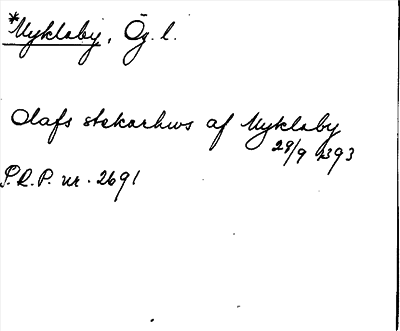 *Myklaby, Ög. l.
Olafs stekarhws af Myklaby
28/9 1393
S.R.P. nr. 2691